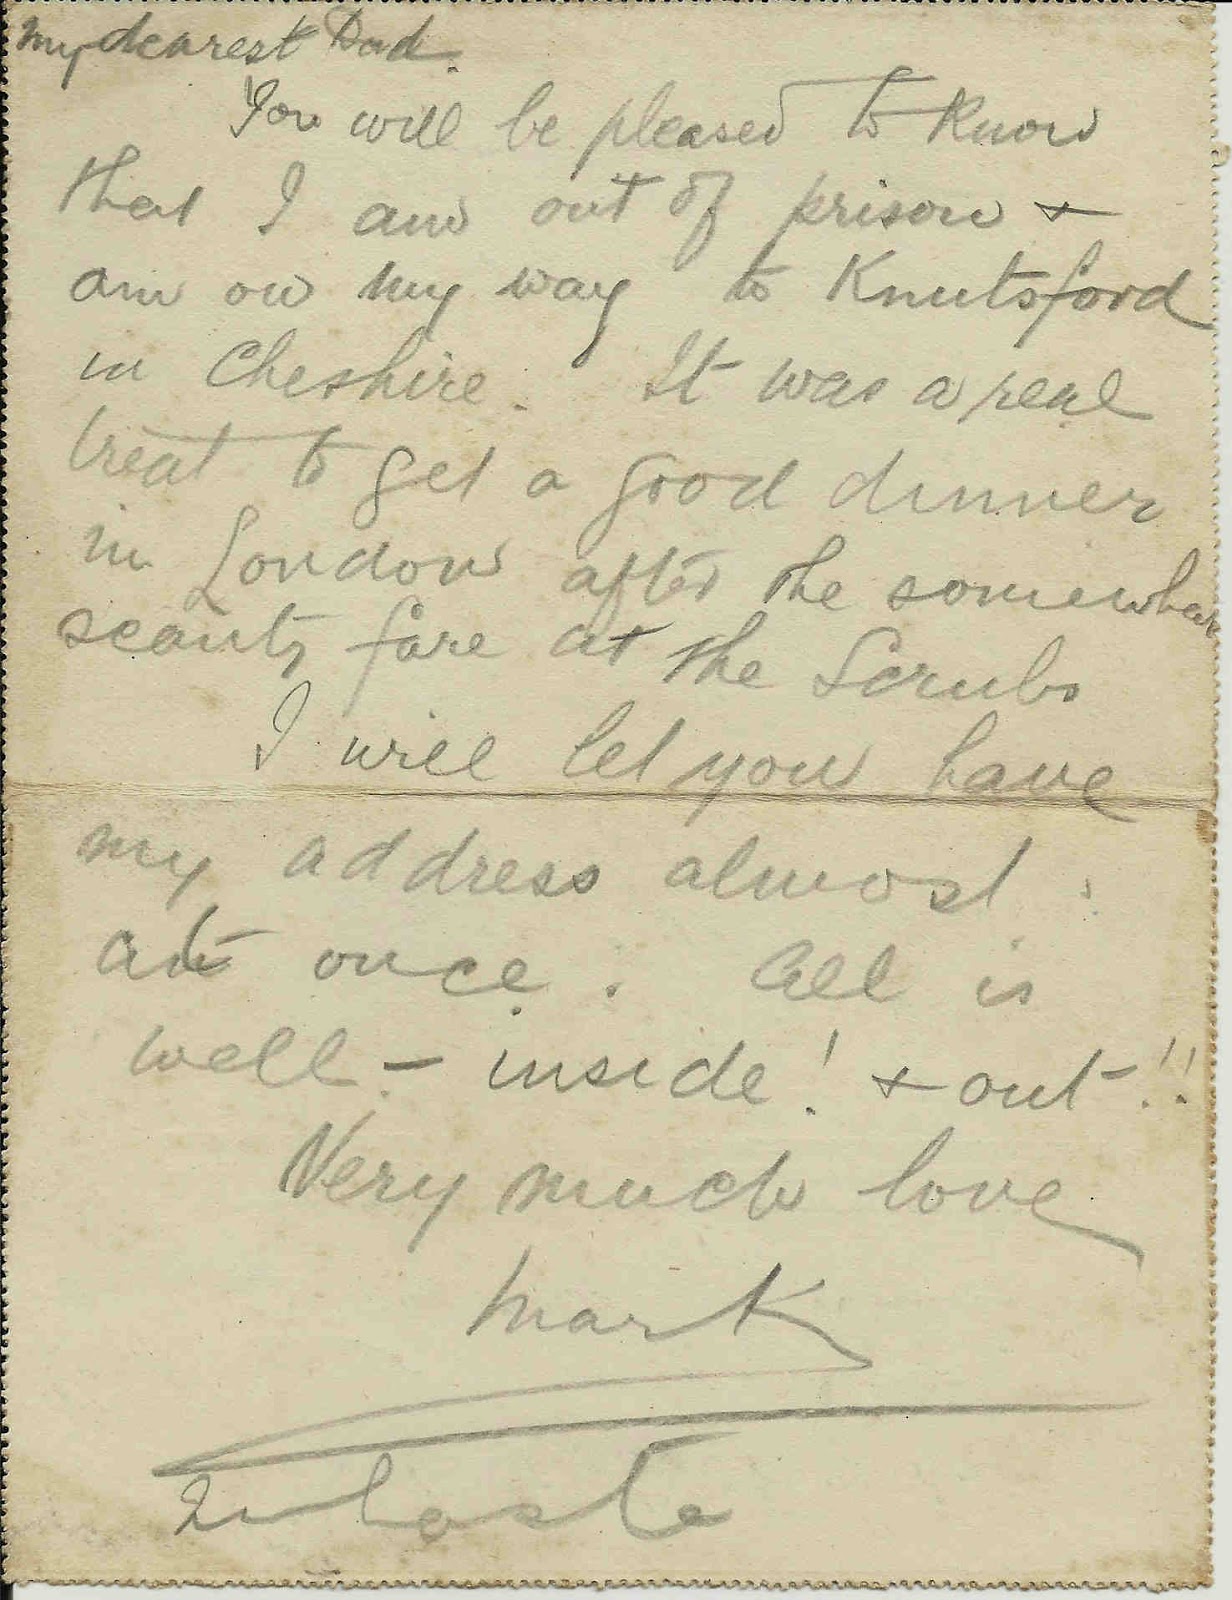 My dearest Dad.
You will be pleased to know
that I am out of prison +
am on my way to Knutsford
in Cheshire. It was a real
treat to get a good dinner
in London after the somewhat
scanty fare at the Scrubs
I will let you have
my address almost
at once. All is
well - inside! + out!!
Very much love
Mark
In haste